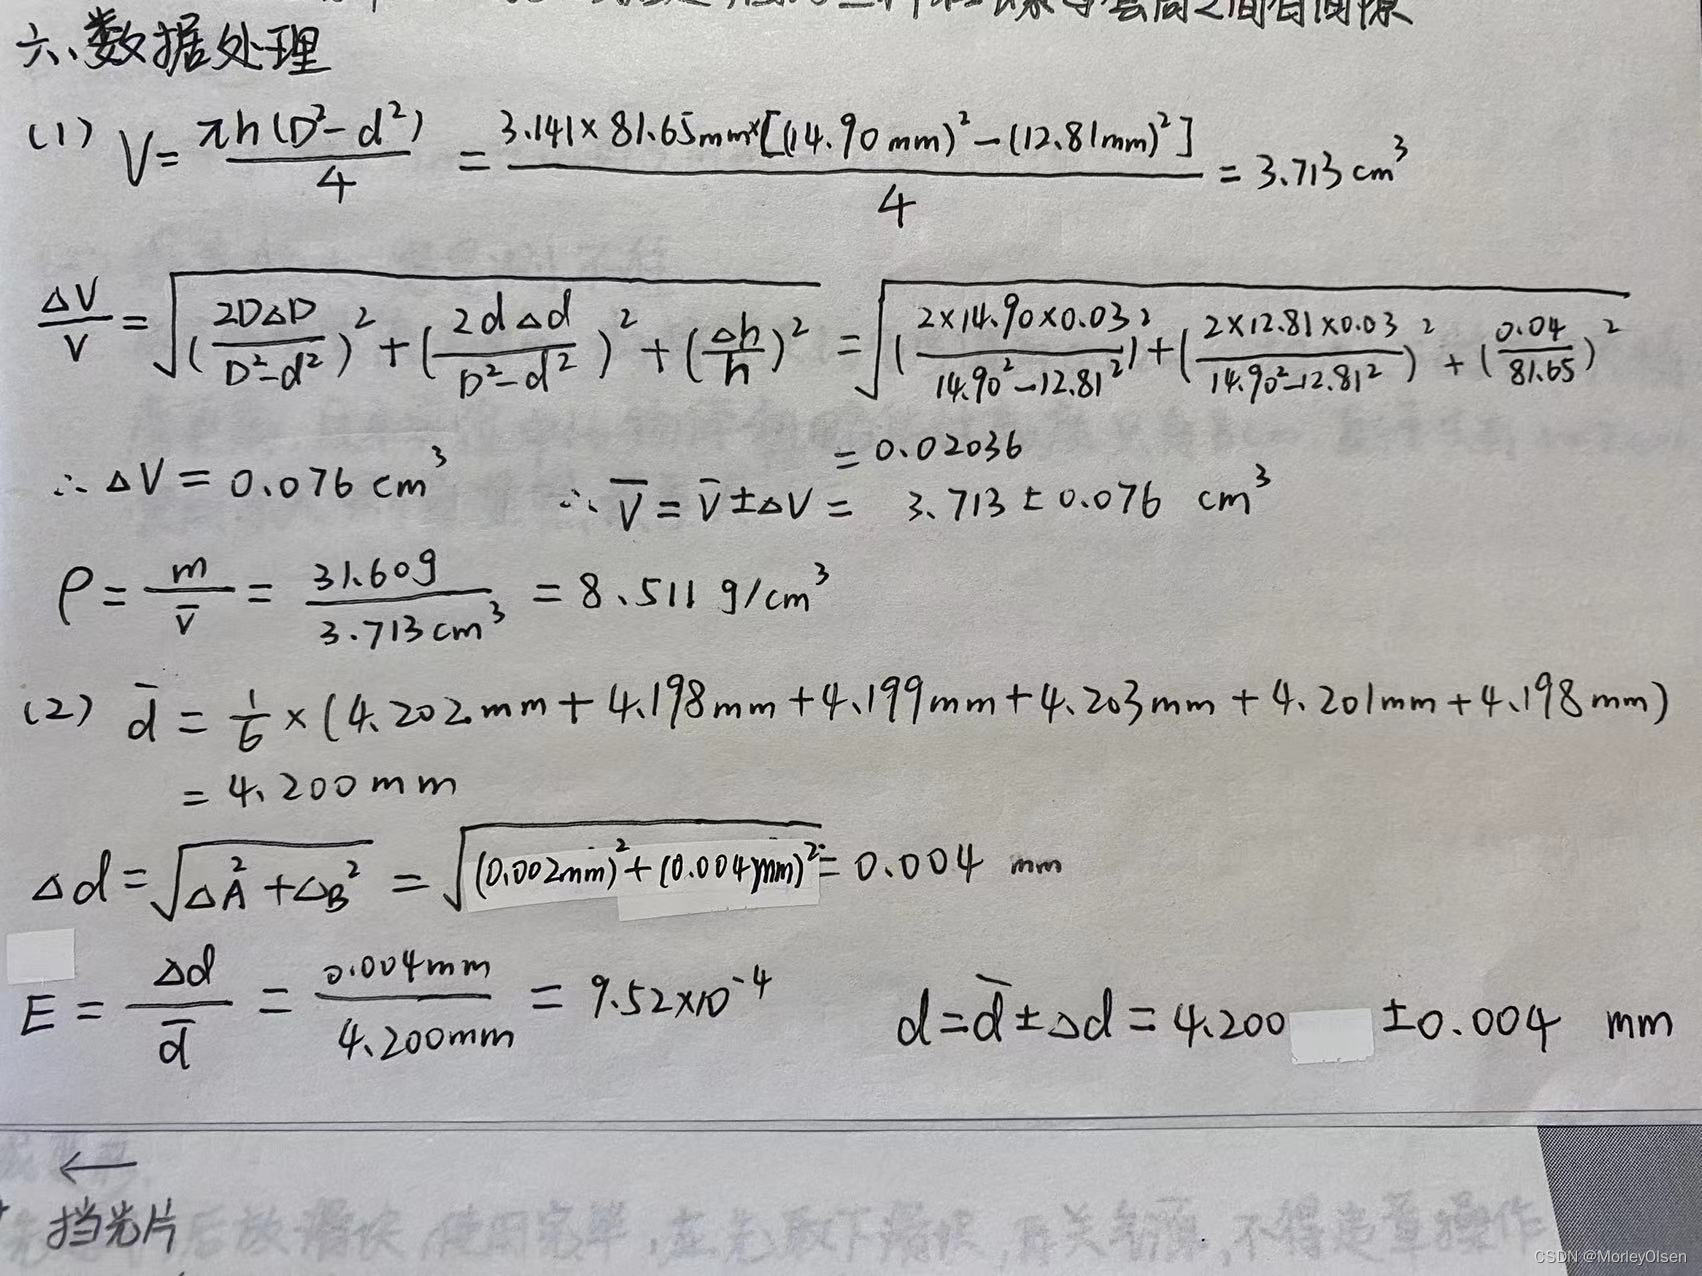 之间有间隙
六、数据处理
(1) V = πh(D²-d²)/4 = 3.141×81.65mm×[(14.90mm)²-(12.81mm)²]/4 = 3.713cm³
ΔV/V = √((2DΔD/D²-d²)²+(2dΔd/D²-d²)²+(Δh/h)²) = √((2×14.90×0.03/14.90²-12.81²)²+(2×12.81×0.03/14.90²-12.81²)²+(0.04/81.65)²)
= 0.02036
∴ ΔV = 0.076 cm³ ∴ V̅ = V̅±ΔV = 3.713±0.076 cm³
ρ = m/V̅ = 31.60g/3.713cm³ = 8.511 g/cm³
(2) d̅ = 1/6×(4.202mm+4.198mm+4.199mm+4.203mm+4.201mm+4.198mm)
= 4.200mm
Δd = √(ΔA²+ΔB²) = √((0.002mm)²+(0.004mm)²) = 0.004 mm
E = Δd/d̅ = 0.004mm/4.200mm = 9.52×10⁻⁴ d = d̅±Δd = 4.200 ±0.004 mm
←
挡光片
CSDN @MorleyOlsen